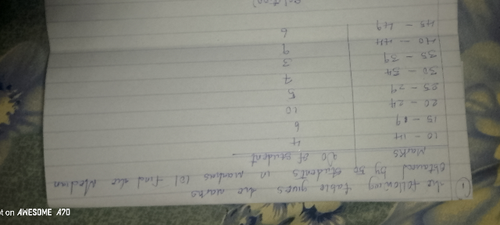 1) The following table gives the marks
obtained by students in find the Median
Marks no of student
10 - 14 4
15 - 19 6
20 - 24 10
25 - 29 5
30 - 34 7
35 - 39 3
40 - 44 9
45 - 49 6
ot on AWESOME A70